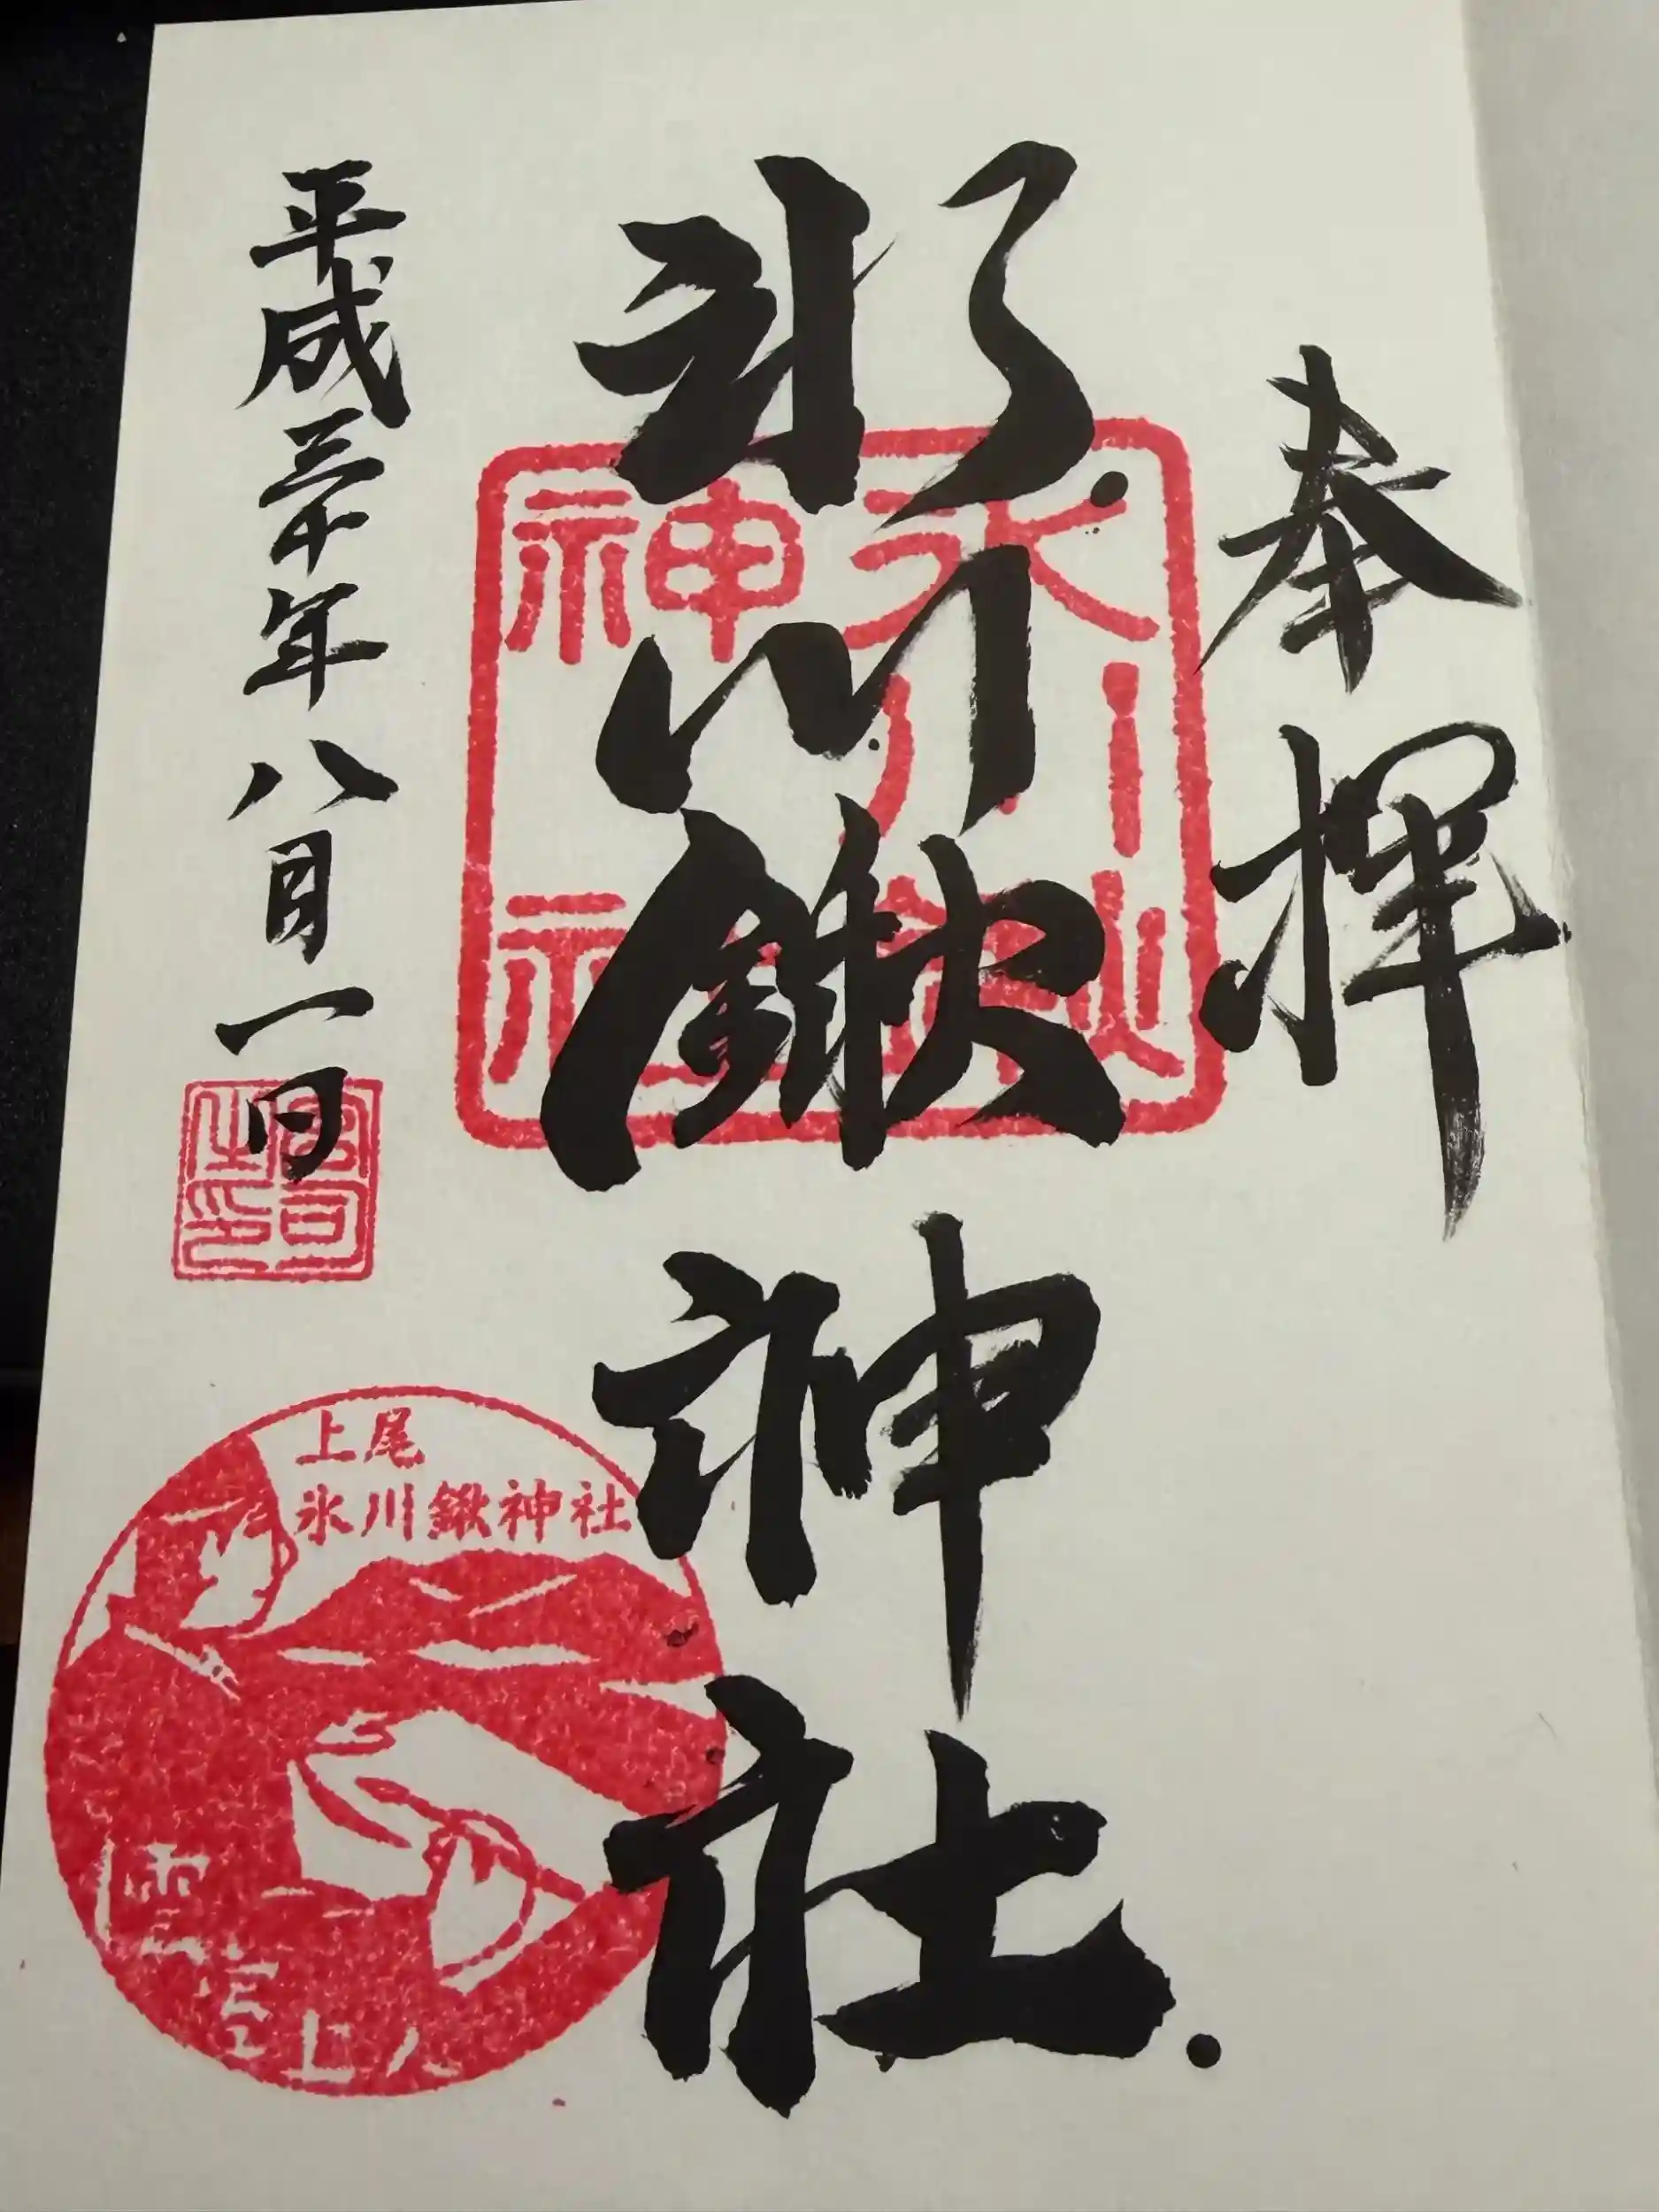 奉拝
氷川鍬神社
氷川鍬神社
平成三十年八月一日
宮司之印
上尾
氷川鍬神社